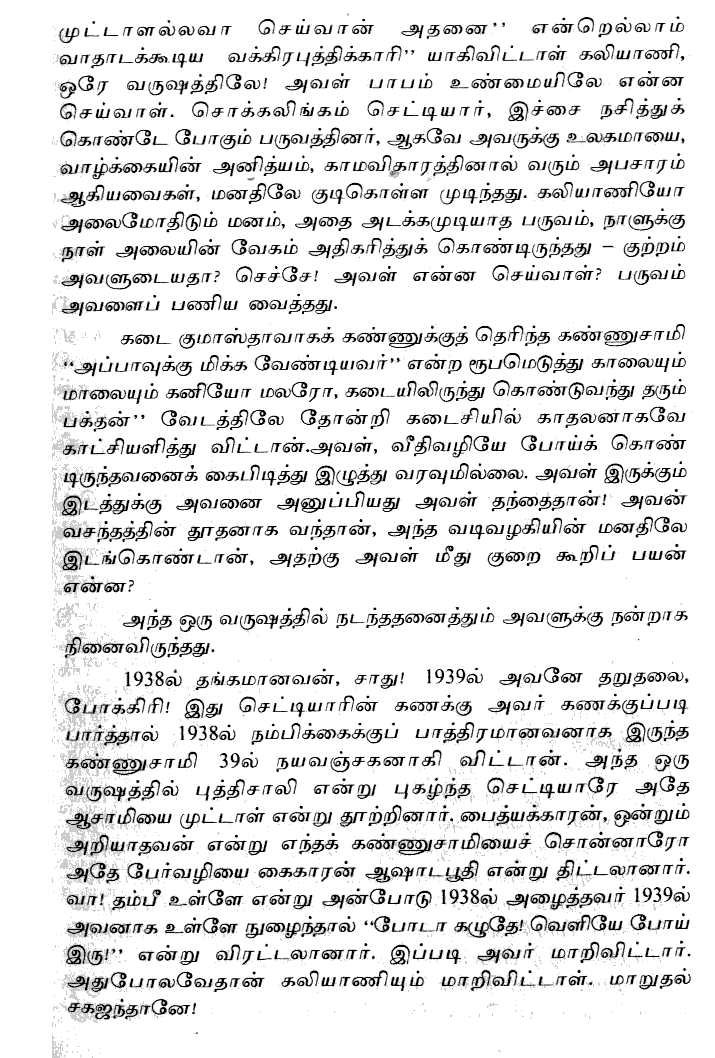 முட்டாளல்லவா செய்வான் அதனை’’ என்றெல்லாம்
வாதாடக்கூடிய வக்கிரபுத்திக்காரி’’ யாகிவிட்டாள் கலியாணி,
ஒரே வருஷத்திலே! அவள் பாபம் உண்மையிலே என்ன
செய்வாள். சொக்கலிங்கம் செட்டியார், இச்சை நசித்துக்
கொண்டே போகும் பருவத்தினர், ஆகவே அவருக்கு உலகமாயை,
வாழ்க்கையின் அனித்யம், காமவிகாரத்தினால் வரும் அபசாரம்
ஆகியவைகள், மனதிலே குடிகொள்ள முடிந்தது. கலியாணியோ
அலைமோதிடும் மனம், அதை அடக்கமுடியாத பருவம், நாளுக்கு
நாள் அலையின் வேகம் அதிகரித்துக் கொண்டிருந்தது – குற்றம்
அவளுடையதா? செச்சே! அவள் என்ன செய்வாள்? பருவம்
அவளைப் பணிய வைத்தது.
கடை குமாஸ்தாவாகக் கண்ணுக்குத் தெரிந்த கண்ணுசாமி
‘‘அப்பாவுக்கு மிக்க வேண்டியவர்’’ என்ற ரூபமெடுத்து காலையும்
மாலையும் கனியோ மலரோ, கடையிலிருந்து கொண்டுவந்து தரும்
பக்தன்’’ வேடத்திலே தோன்றி கடைசியில் காதலனாகவே
காட்சியளித்து விட்டான்.அவள், வீதிவழியே போய்க் கொண்
டிருந்தவனைக் கைபிடித்து இழுத்து வரவுமில்லை. அவள் இருக்கும்
இடத்துக்கு அவனை அனுப்பியது அவள் தந்தைதான்! அவன்
வசந்தத்தின் தூதனாக வந்தான், அந்த வடிவழகியின் மனதிலே
இடங்கொண்டான், அதற்கு அவள் மீது குறை கூறிப் பயன்
என்ன?
அந்த ஒரு வருஷத்தில் நடந்ததனைத்தும் அவளுக்கு நன்றாக
நினைவிருந்தது.
1938ல் தங்கமானவன், சாது! 1939ல் அவனே தறுதலை,
போக்கிரி! இது செட்டியாரின் கணக்கு அவர் கணக்குப்படி
பார்த்தால் 1938ல் நம்பிக்கைக்குப் பாத்திரமானவனாக இருந்த
கண்ணுசாமி 39ல் நயவஞ்சகனாகி விட்டான். அந்த ஒரு
வருஷத்தில் புத்திசாலி என்று புகழ்ந்த செட்டியாரே அதே
ஆசாமியை முட்டாள் என்று தூற்றினார். பைத்யக்காரன், ஒன்றும்
அறியாதவன் என்று எந்தக் கண்ணுசாமியைச் சொன்னாரோ
அதே பேர்வழியை கைகாரன் ஆஷாடபூதி என்று திட்டலானார்.
வா! தம்பீ உள்ளே என்று அன்போடு 1938ல் அழைத்தவர் 1939ல்
அவனாக உள்ளே நுழைந்தால் ‘‘போடா கழுதே! வெளியே போய்
இரு!’’ என்று விரட்டலானார். இப்படி அவர் மாறிவிட்டார்.
அதுபோலவேதான் கலியாணியும் மாறிவிட்டாள். மாறுதல்
சகஜந்தானே!